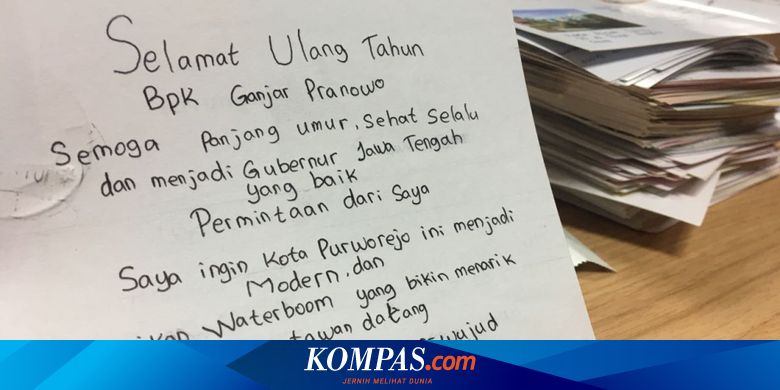 Selamat Ulang Tahun
Bpk Ganjar Pranowo
Semoga Panjang umur, Sehat Selalu
dan menjadi Gubernur Jawa Tengah
yang baik
Permintaan dari Saya
Saya ingin Kota Purworejo ini menjadi
Modern, dan
Waterboom yang bikin menarik
datang
KOMPAS.com
JERNIH MELIHAT DUNIA